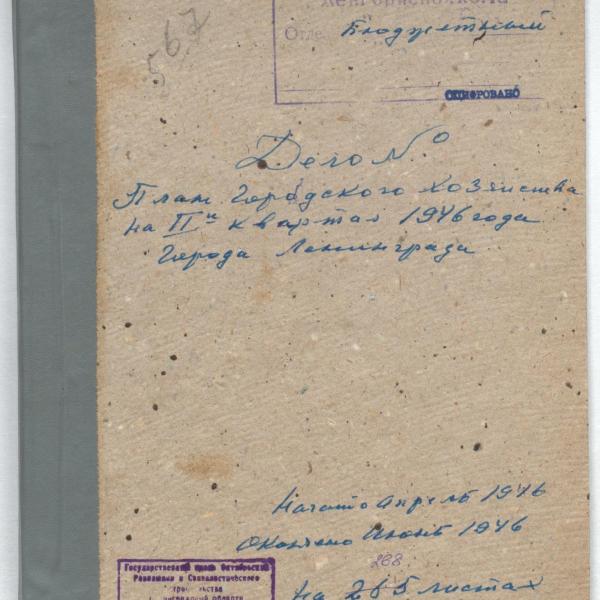 567
Ленгорисполкома
Отде
Бюджетный
ОЦИФРОВАНО
Дело №
План Городского хозяйства
на IIй квартал 1946 года
Города Ленинграда
Начато Апрель 1946
Окончено Июнь 1946
288
на 285 листах
Государственный архив Октябрьской
Революции и Социалистического
Строительства
Ленинградской области